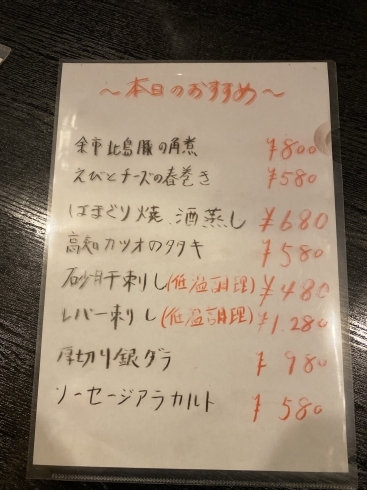 〜本日のおすすめ〜
余市北島豚の角煮 ¥800
えびとチーズの春巻き ¥580
はまぐり焼 酒蒸し ¥680
高知カツオのタタキ ¥580
砂肝刺し(低温調理) ¥480
レバー刺し(低温調理) ¥1,280
厚切り銀ダラ ¥980
ソーセージアラカルト ¥580